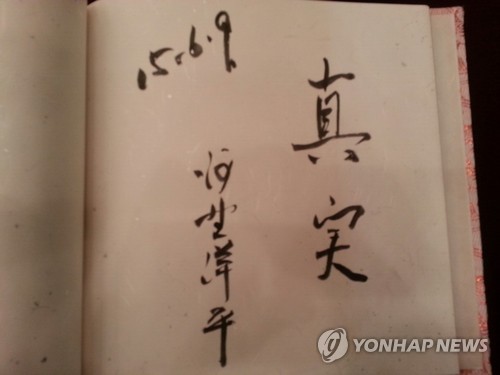 真実
河野洋平
15.6.9.
YONHAP NEWS